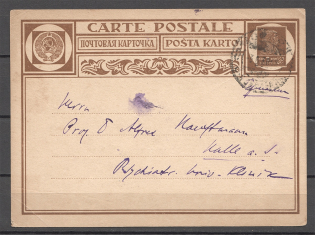 CARTE POSTALE
ПОЧТОВАЯ КАРТОЧКА POŜTA KARTO
Herrn
Prof. D Alfred Hauptmann
Halle a. S.
Psychiatr. Univ. Klinik